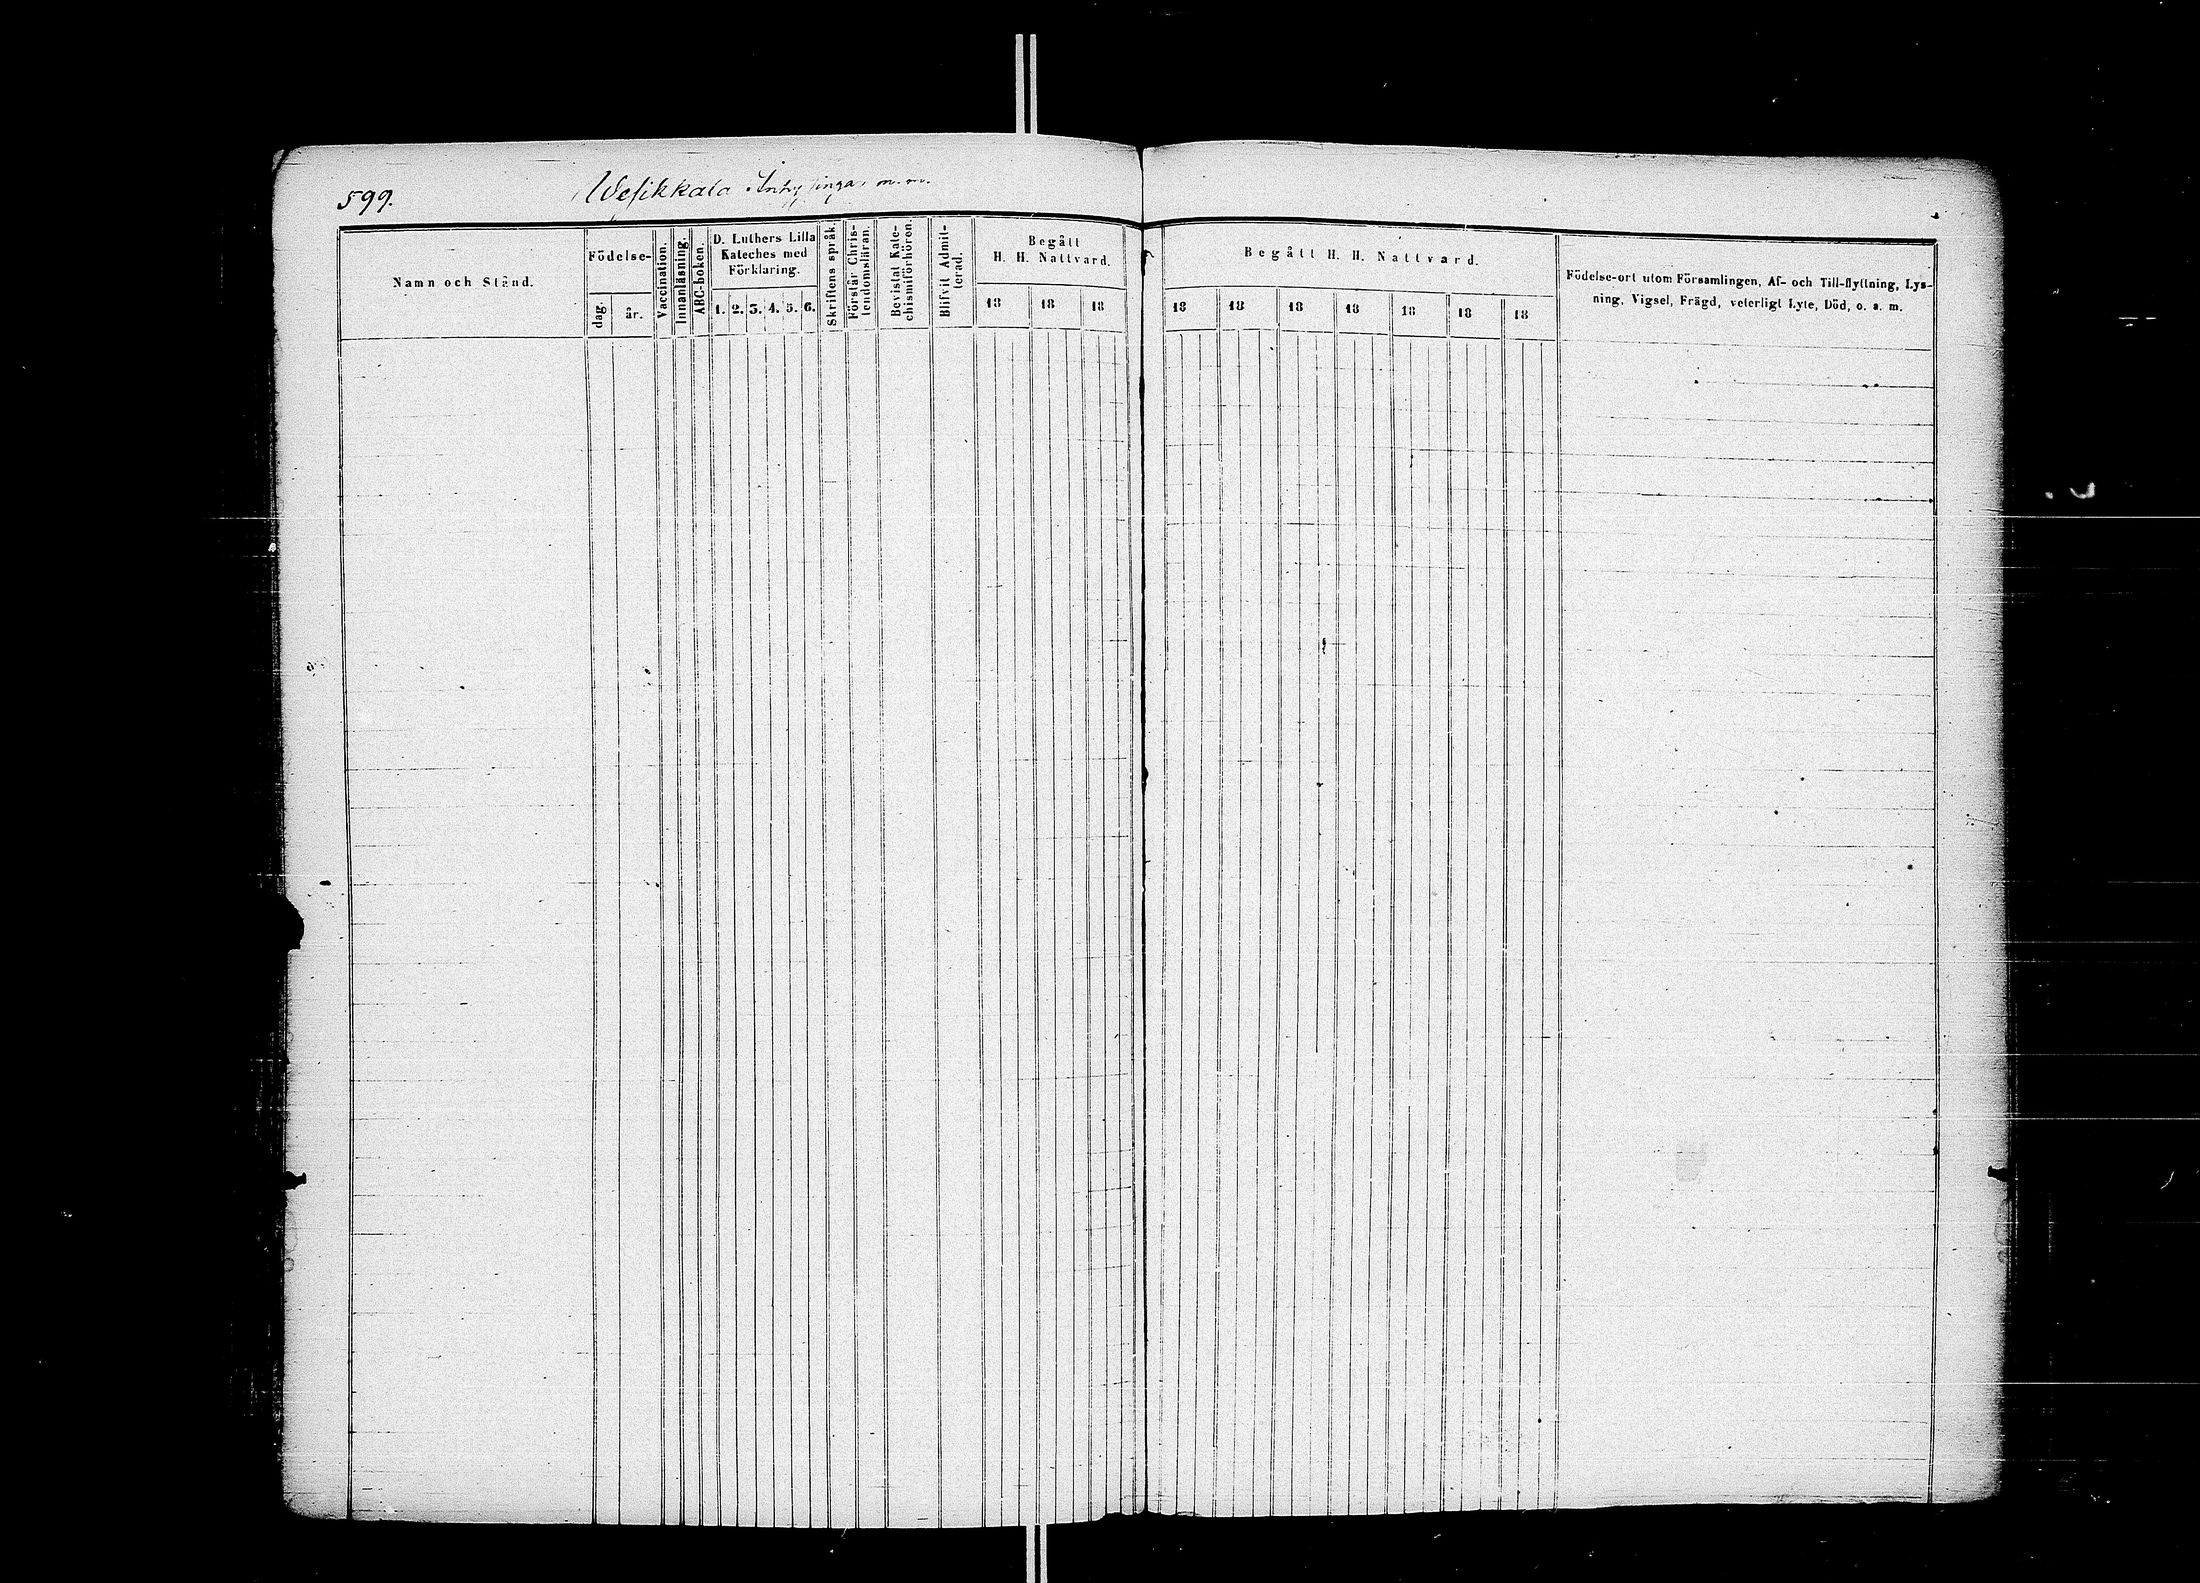 599.
Wesikkala Inhysingar m. m.
Namn och Stånd.
Födelse-
dag
år.
Vaccination.
Innanläsning.
ABC-boken.
D. Luthers Lilla
Kateches med
Förklaring.
1. 2. 3. 4. 5. 6.
Skriftens språk.
Förstår Chris-
tendomsläran.
Bevistat Kate-
chismiförhören.
Blifvit Admit-
terad.
Begått
H. H. Nattvard.
18 18 18
Begått H. H. Nattvard.
18 18 18 18 18 18 18
Födelse-ort utom Församlingen, Af- och Till-flyttning, Lys-
ning, Vigsel, Frägd, veterligt Lyte, Död, o. s. m.